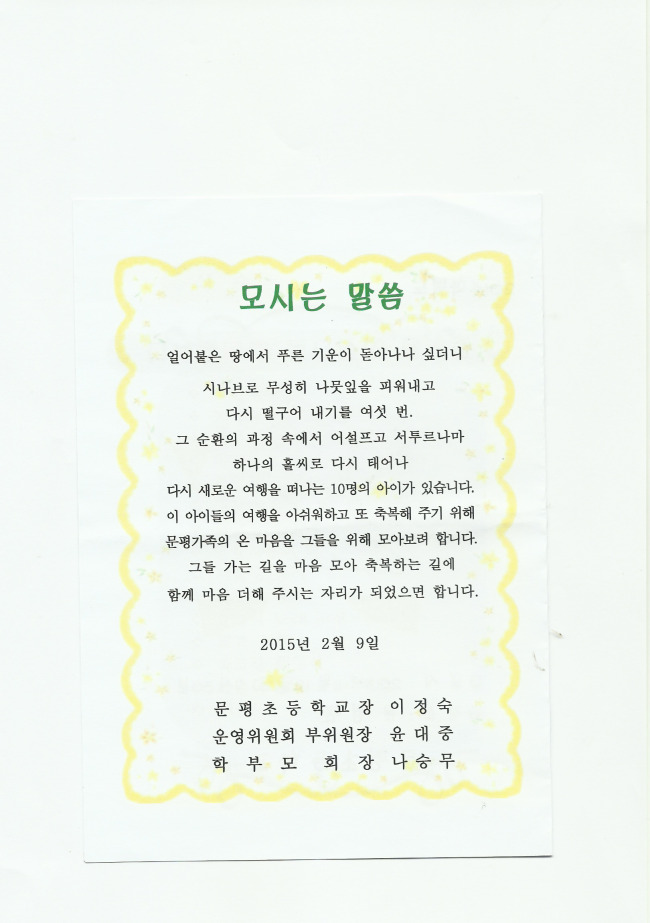 모시는 말씀
얼어붙은 땅에서 푸른 기운이 돋아나나 싶더니
시나브로 무성히 나뭇잎을 피워내고
다시 떨구어 내기를 여섯 번.
그 순환의 과정 속에서 어설프고 서투르나마
하나의 홀씨로 다시 태어나
다시 새로운 여행을 떠나는 10명의 아이가 있습니다.
이 아이들의 여행을 아쉬워하고 또 축복해 주기 위해
문평가족의 온 마음을 그들을 위해 모아보려 합니다.
그들 가는 길을 마음 모아 축복하는 길에
함께 마음 더해 주시는 자리가 되었으면 합니다.
2015년 2월 9일
문 평 초 등 학 교 장 이 정 숙
운영위원회 부위원장 윤 대 중
학 부 모 회 장 나 승 무